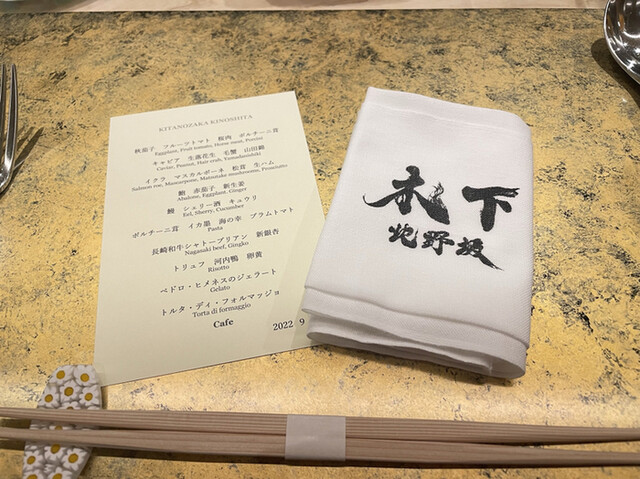 KITANOZAKA KINOSHITA
秋茄子　フルーツトマト　桜肉　ポルチーニ茸
Eggplant, Fruit tomato, Horse meat, Porcini
キャビア　生落花生　毛蟹　山田錦
Caviar, Peanut, Hair crab, Yamadanishiki
イクラ　マスカルポーネ　松茸　生ハム
Salmon roe, Mascarpone, Matsutake mushroom, Prosciutto
鮑　赤茄子　新生姜
Abalone, Eggplant, Ginger
鰻　シェリー酒　キュウリ
Eel, Sherry, Cucumber
ポルチーニ茸　イカ墨　海の幸　プラムトマト
Pasta
長崎和牛シャトーブリアン　新銀杏
Nagasaki beef, Gingko
トリュフ　河内鴨　卵黄
Risotto
ペドロ・ヒメネスのジェラート
Gelato
トルタ・ディ・フォルマッジョ
Torta di formaggio
Cafe
2022 9
木下
北野坂